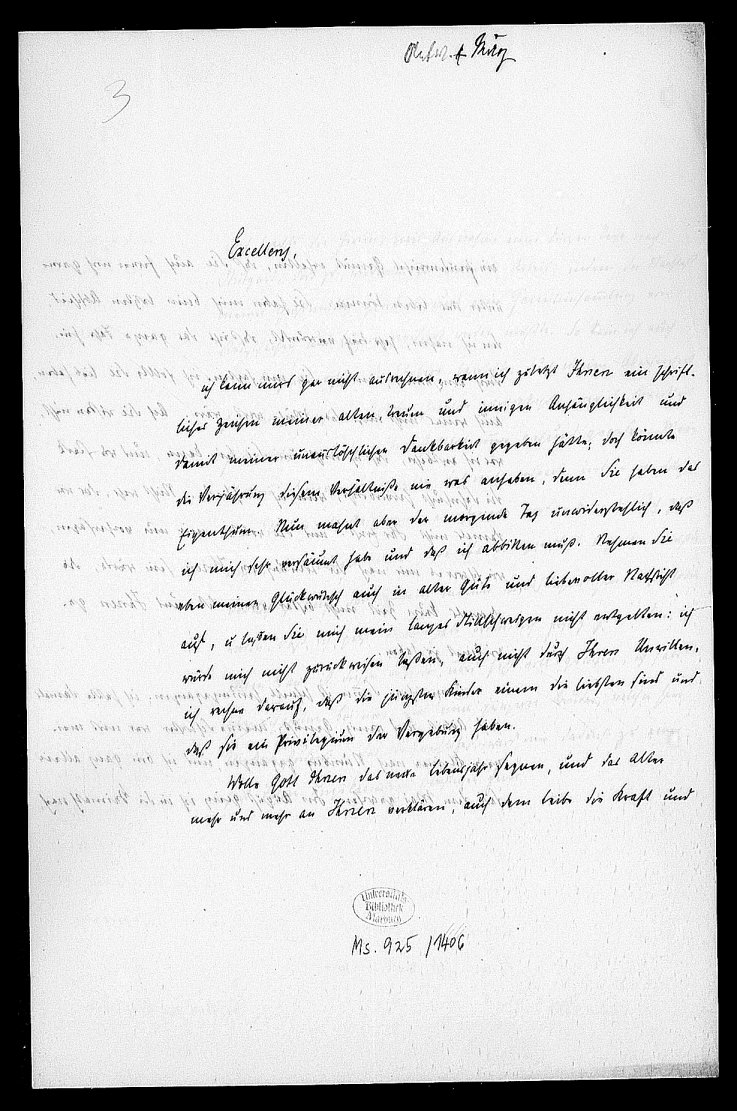 3
Antw. 4 März
Excellenz,
ich kann mirs gar nicht ausrechnen, wenn ich zuletzt Ihnen ein schrift-
liches Zeichen meiner alten treuen und innigen Anhänglichkeit und
damit meiner unauslöschlichen Dankbarkeit gegeben hätte; doch könnte
die Verjährung diesem Verhältniße nie was anhaben, denn Sie haben das
Eigenthum. Nun mahnt aber der morgende Tag unwiderstehlich, daß
ich mich sehr versäumt habe und daß ich abbitten muß. Nehmen Sie
eben meinen Glückwunsch auch in alter Güte und liebevoller Nachsicht
auf, u laßen Sie mich mein langes Stillschweigen nicht entgelten: ich
würde mich nicht zurückweisen laßen, auch nicht durch Ihren Unwillen,
ich rechne darauf, daß die jüngsten Kinder einem die liebsten sind und
daß sie ein Privilegium der Vergebung haben.
Wolle Gott Ihnen das neue Lebensjahr segnen, und das Alter
mehr und mehr an Ihnen verklären, auch dem Leibe die Kraft und
Universitäts
Bibliothek
Marburg
Ms. 925/1406